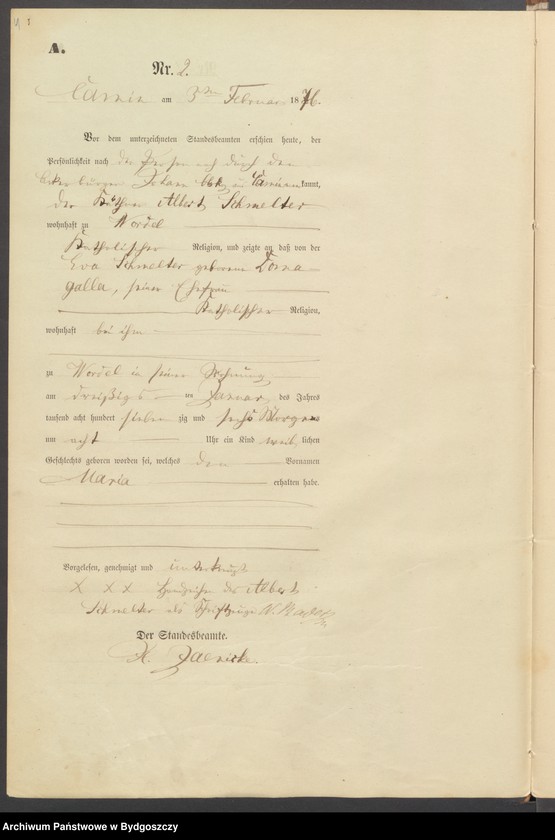 A.
Nr. 2.
am 3ten Februar 1876.
Vor dem unterzeichneten Standesbeamten erschien heute, der
Persönlichkeit nach der Person nach durch den
Johann in kannt,
der Albert Schmelter
wohnhaft zu Wordel
Katholischer Religion, und zeigte an, daß von der
Eva Schmelter geborene Doma
galla, seiner Ehefrau
Katholischer Religion,
wohnhaft bei ihm
zu Wordel in seiner Wohnung
am dreißigs ten Januar des Jahres
tausend acht hundert sieben zig und sechs Morgens
um acht Uhr ein Kind weib lichen
Geschlechts geboren worden sei, welches den Vornamen
Maria erhalten habe.
Vorgelesen, genehmigt und unterkreuzt
X X X Handzeichen des Albert
Schmelter als
Der Standesbeamte.
Archiwum Państwowe w Bydgoszczy